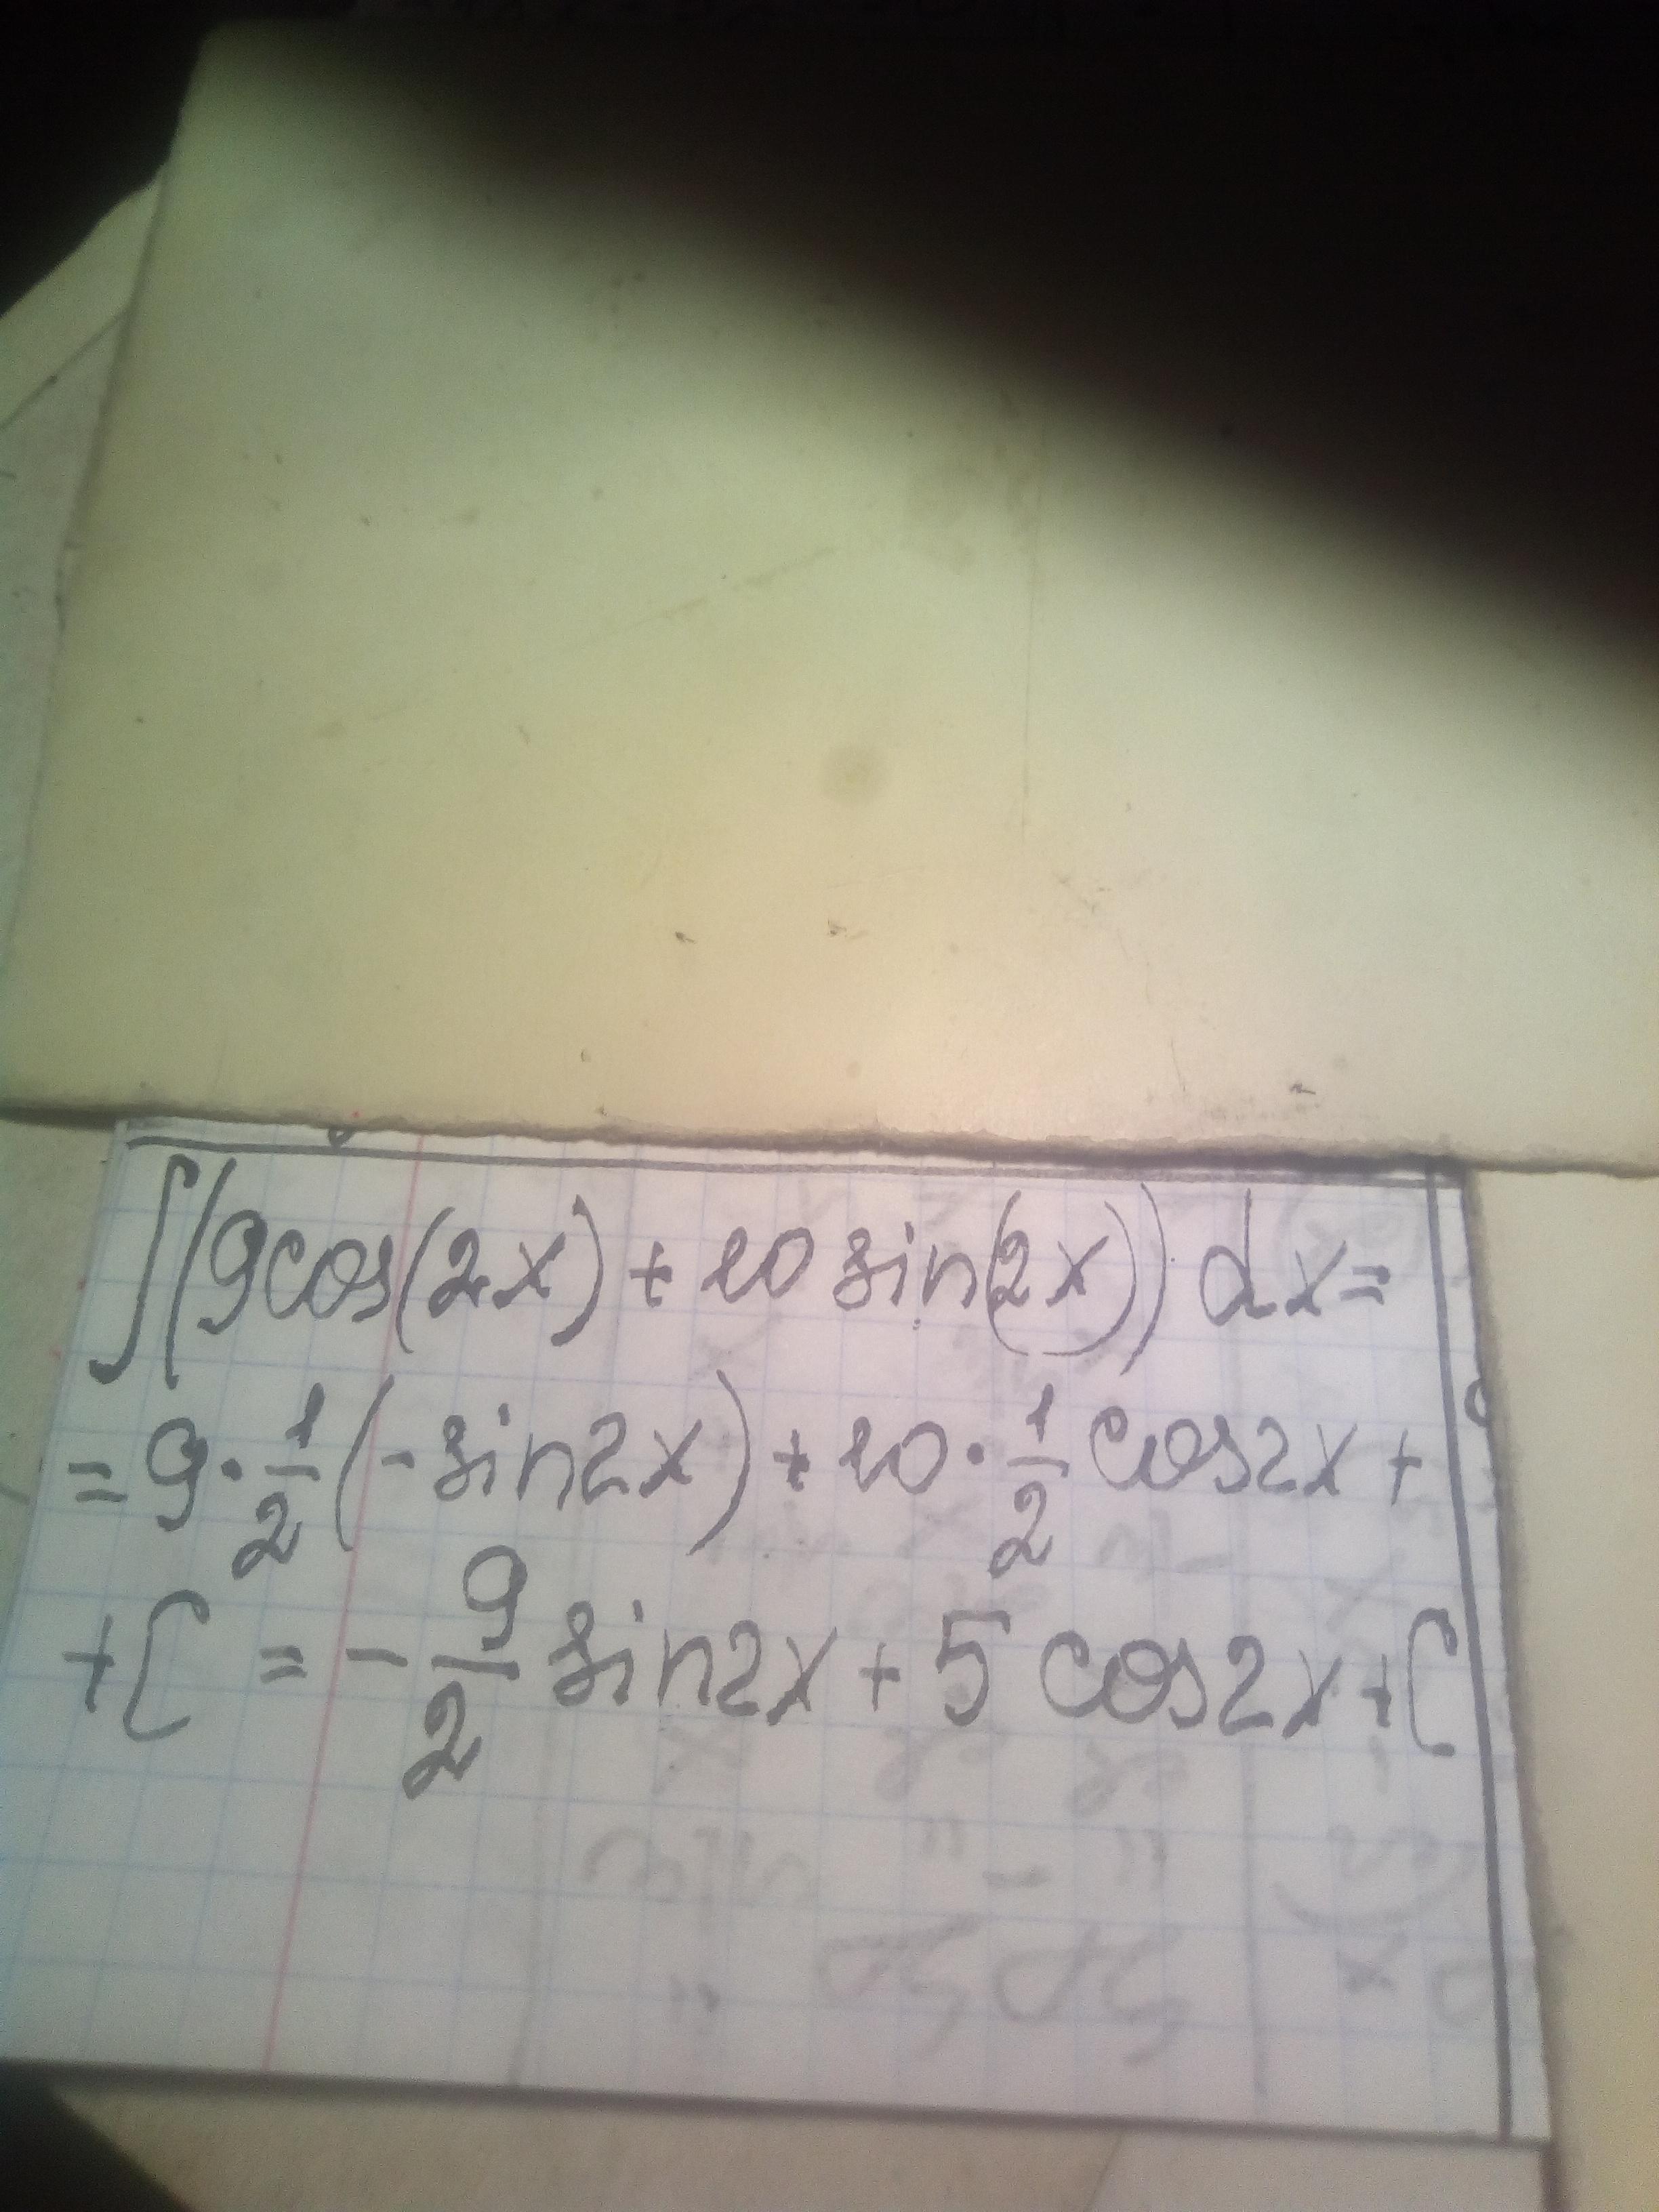 ∫(9cos(2x)+10sin(2x))dx=
=9·1/2(-sin2x)+10·1/2cos2x+
+C=-9/2sin2x+5cos2x+C